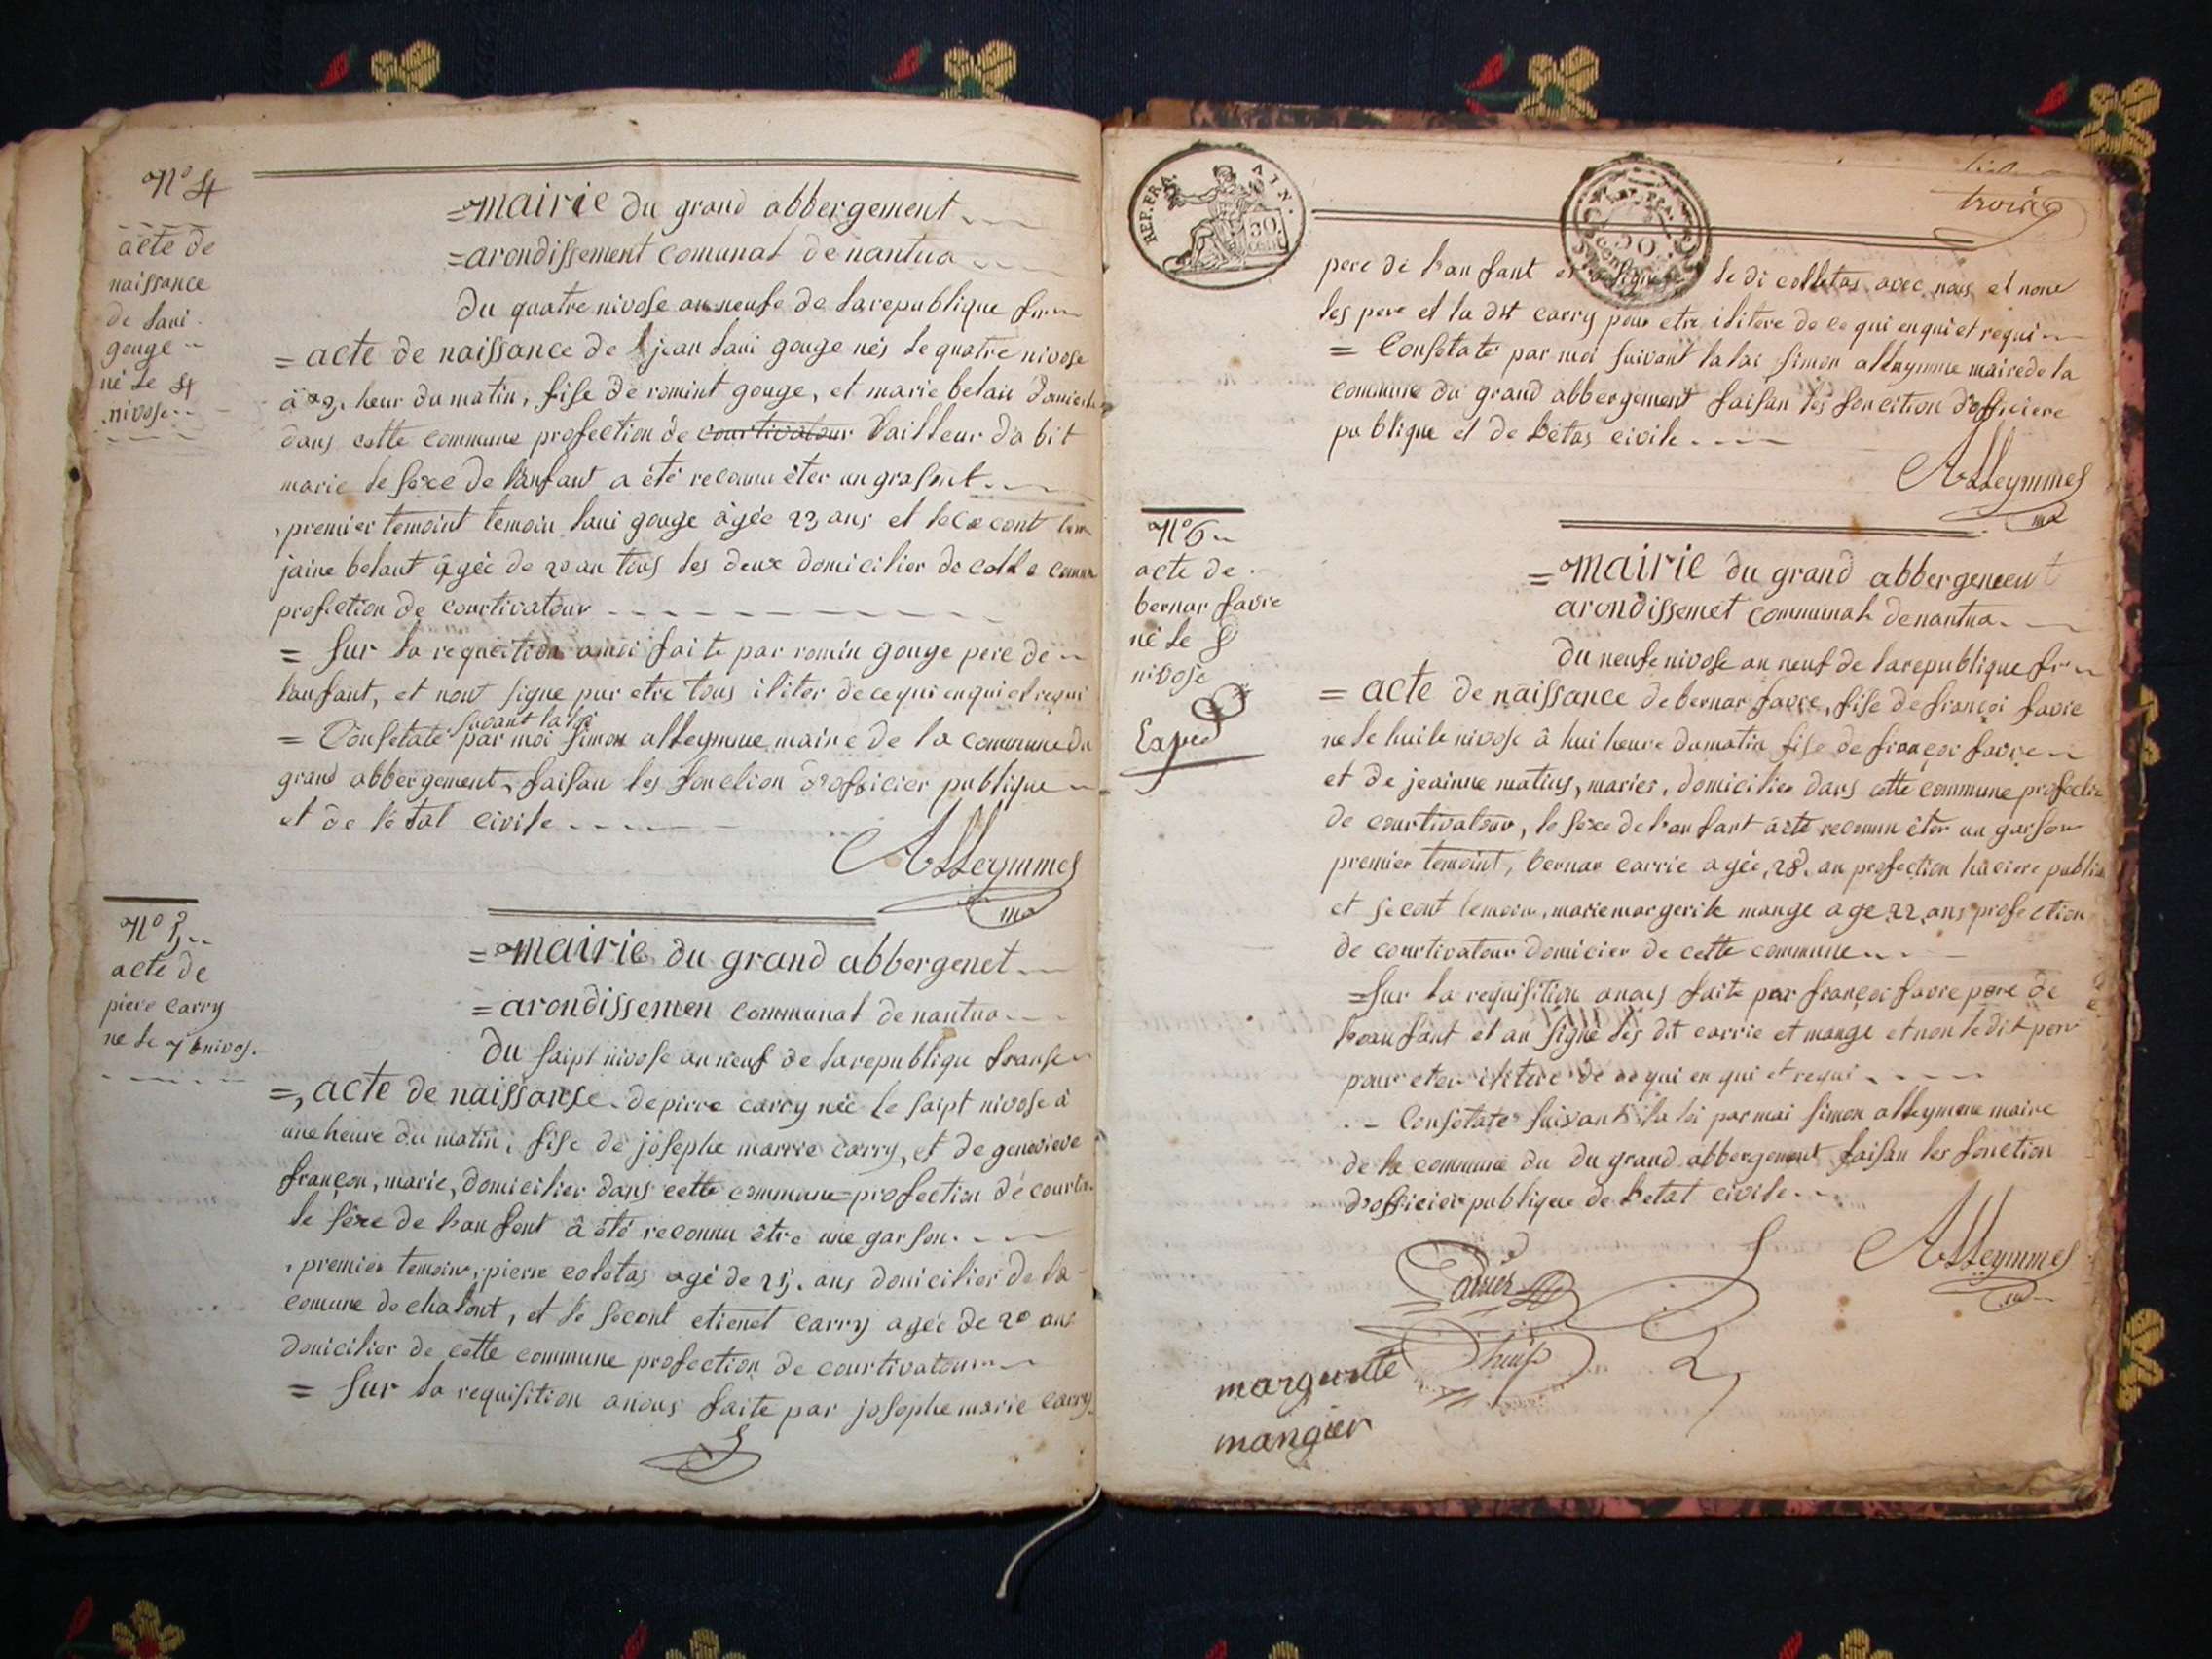 N° 4
acte de
naissance
de laui
gouge
né le 4
nivose
=mairie du grand abbergement
=arondissement comunal de nantua
du quatre nivose an neufe de la republique
= acte de naissance de jean laui gouge nés le quatre nivose
heur du matin, fise de romint gouge, et marie belan
dans cette commune profection de courtivatour tailleur da bit
marie le sexe de l'anfant a été reconnu éter un
premier temoint temoin laui gouge âgée 23 ans et le cont
jaine belant âgée de 20 an tous les deux domicilier de
profection de courtivatour
= sur la a moi faite par romin gouge pere de
l'anfant, et nont signe pur etre tous iliter de ce qui enqui et requi
suvant la loi
= Consetaté par moi simon alleymme maire de la commune du
grand abbergement, faisan les fonction d'officier publique
et de l'état civile
Alleymmes
ma
N° 5
acte de
piere carry
ne le 7 nivos.
=mairie du grand abbergenet
=arondissemen communal de nantua
Du saipt nivose an neuf de la republiqu franse
=, acte de naissanse de pirre carry née le saipt nivose à
une heure du matin, fise de josephe marrie carry, et de genevieve
françon, marie, domicilier dans cette commune profection de
le séxe de l'an fent â été reconnu être une garson.
premier temoin, pierre coletas agé de 25. ans donicilier de la
comune de chatont, et le secont etienet carry agée de 20 ans
donicilier de cette commune profection de courtivatour
= sur la requisition anous faite par josephe marie carry
REP. FRA.
AIN.
50
cent
50
troise
pere de l'an fant et le di colletas avec nous et none
les pere et la dit carry pour etre ilitere de ce qui enqui et requi
= Consetaté par moi suivant la loi simon alleymme maire de la
commune du grand abbergement faisan les fonction d'officiere
publique et de l'étas civile
Alleymmes
ma
N° 6
acte de
bernar favre
né le 8
nivose
=mairie du grand abbergement
arondissemet communal de nantua
du neufe nivose an neuf de la republique fr
= acte de naissance de bernar favre, fise de françoi favre
ne le huite nivose â hui heure du matin fise de françoi favre
et de jeainne matius, maries, domicilier dans cette commune
de courtivatour, le sexe de l'an fant âcté reconnu éter un garson
premier temoint, bernar carrie agée, 28. an profection
et secont temoin, marie margerite mange age 22 ans profection
de courtivatour domicier de cette commune
=sur la requisition anous faite par françoi favre pere de
l'anfant et an signé les dit carrie et mange et non le dit
pour eter ilitere de ce qui en qui et requi
Consetaté suivant la loi par moi simon alleymme maire
de la commune du du grand abbergement faisan les fonction
d'officier publique de l'etat civile
Alleymmes
marguerite
mangier